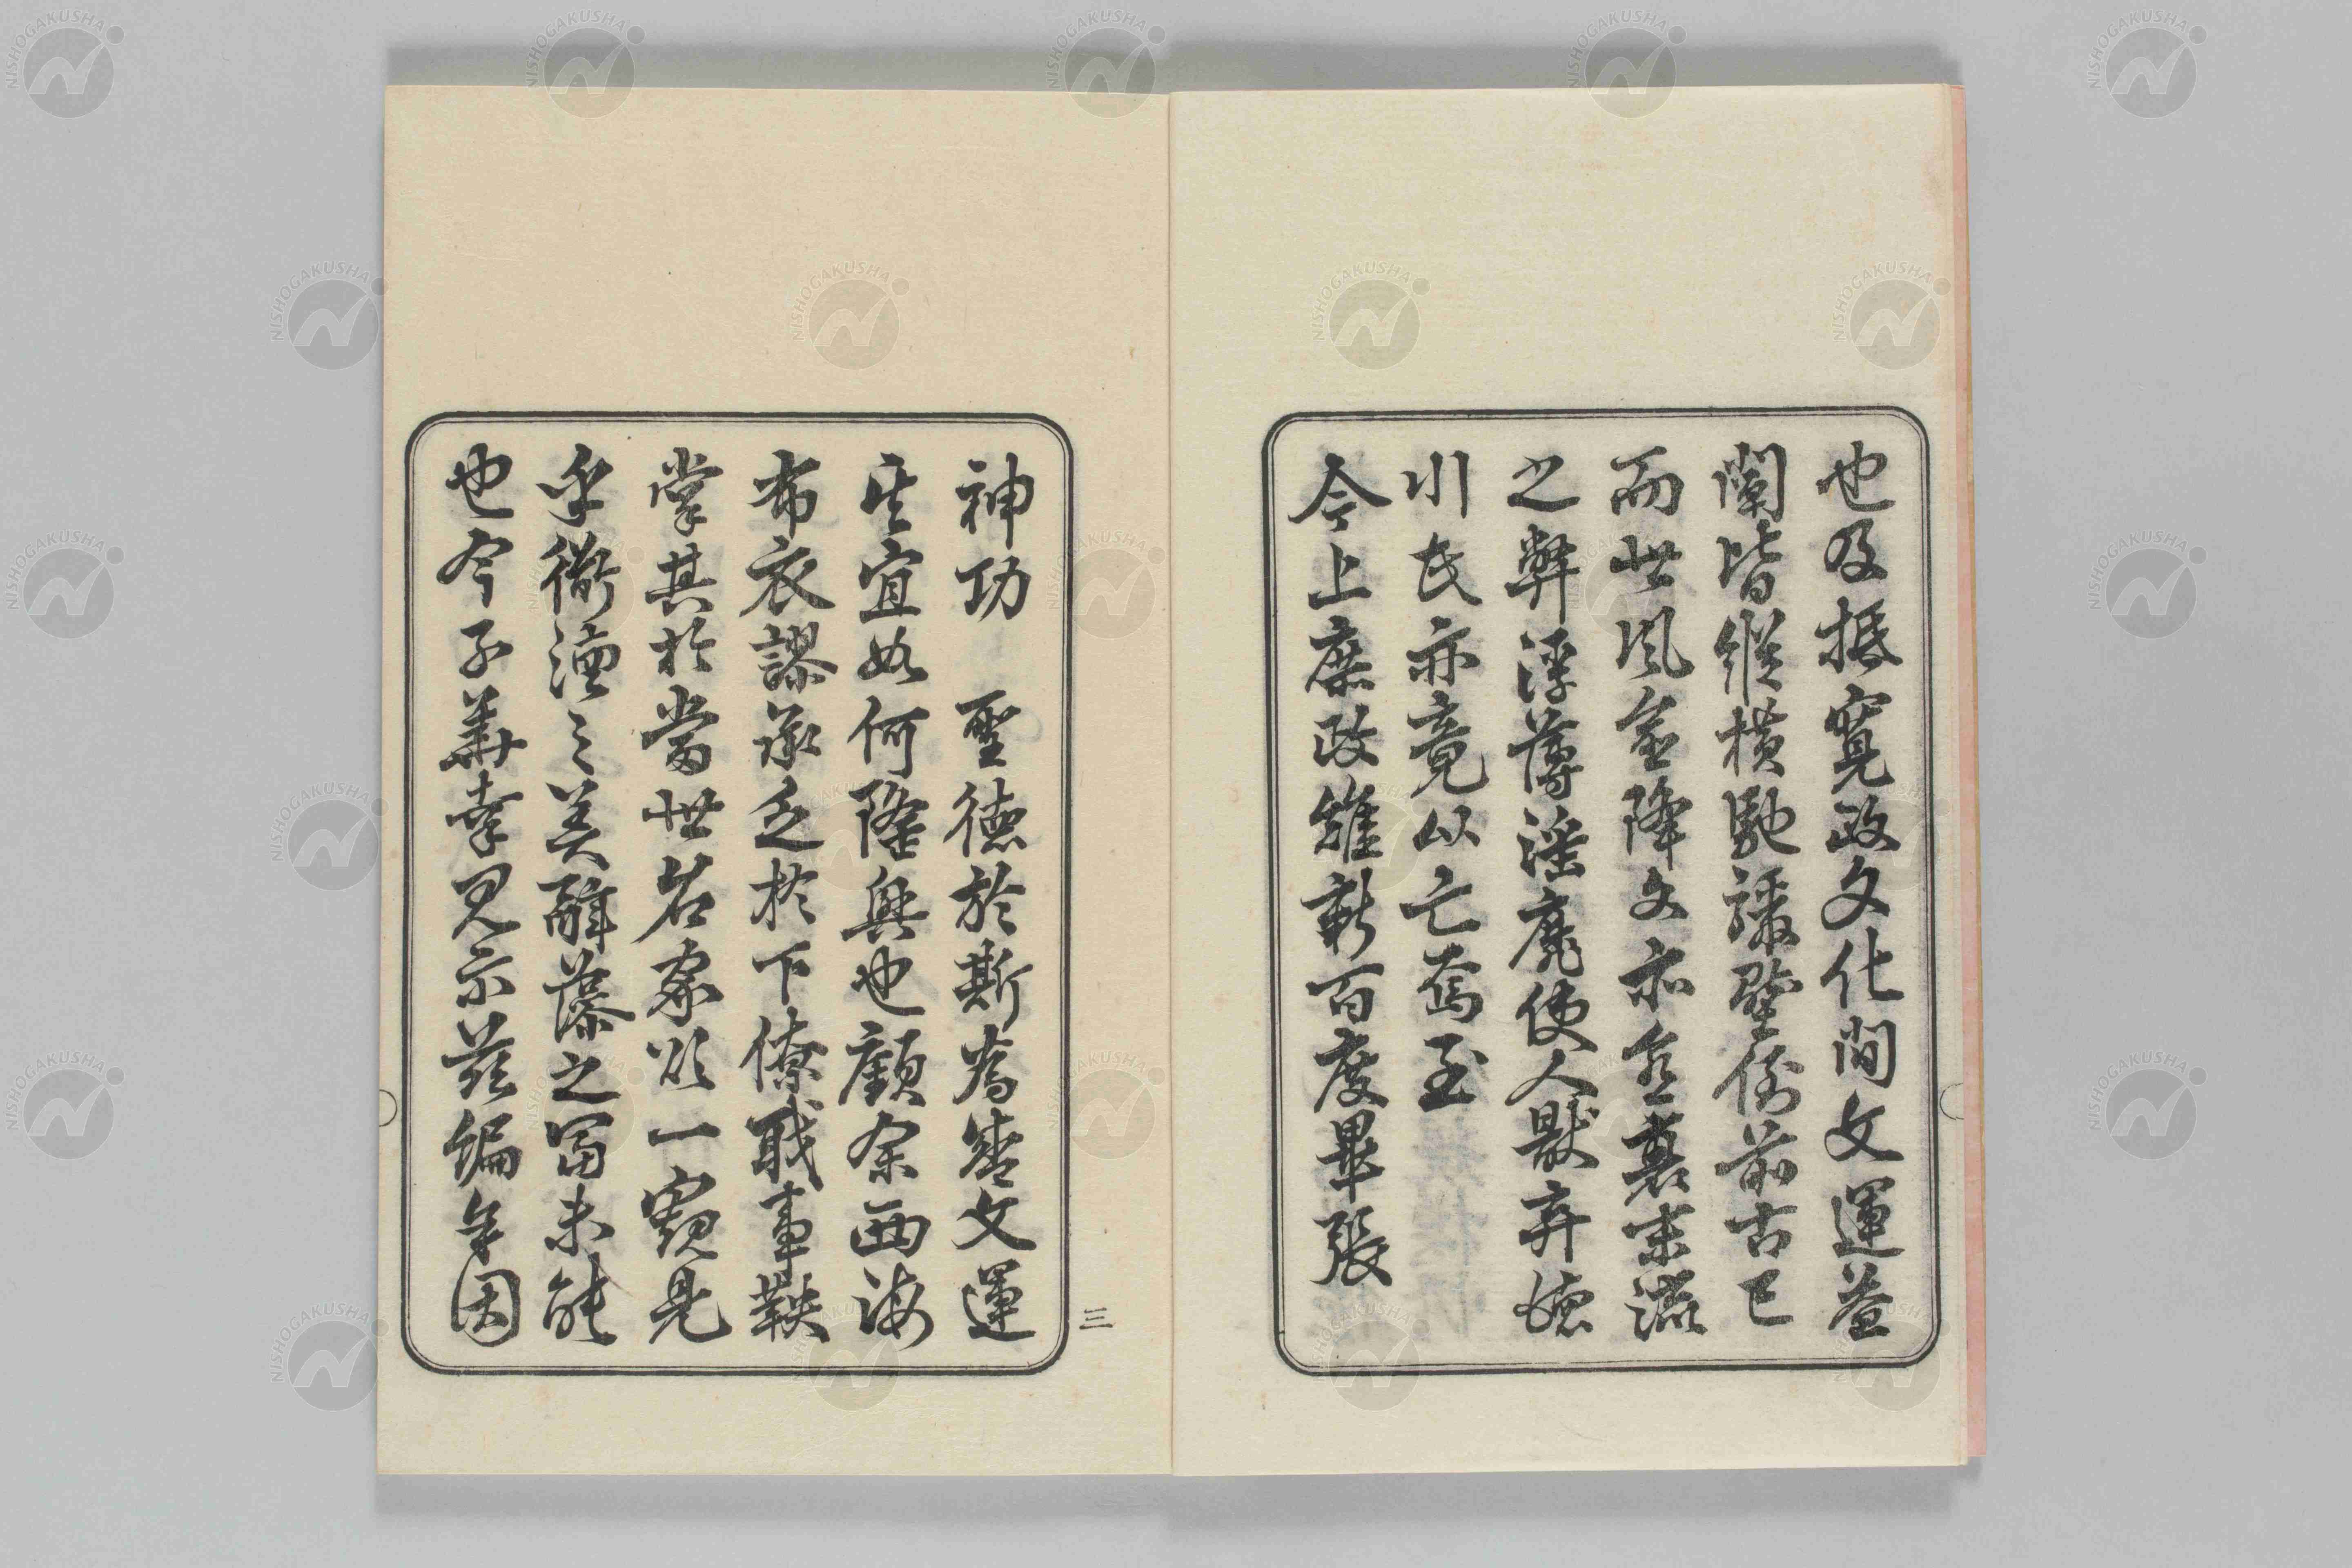 也及抵寛政文化間文運益
闡皆縱横馳驟壓倒前古已
而世風益降文亦益衰末流
之弊浮薄淫靡使人厭弃德
川氏亦竟以亡焉至
今上庶政維新百度畢張
神功 聖德於斯爲盛文運
其宜如何隆興也顧余西海
布衣謬承乏於下僚職事鞅
掌其於當世名家以一窺是
年銜湮之美辭藻之富未能
也今子華幸見示茲編余因
三
NISHOGAKUSHA